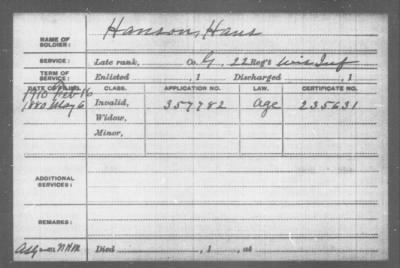 NAME OF SOLDIER: Hanson, Hans
SERVICE: Late rank, Co. G, 22 Reg't Wis Inf
TERM OF SERVICE: Enlisted , 1 Discharged , 1
DATE OF FILING. CLASS. APPLICATION NO. LAW. CERTIFICATE NO.
1910 Feb 16
1880 May 6 Invalid, 357782 Age 235631
Widow,
Minor,
ADDITIONAL SERVICES:
REMARKS:
Died , 1 , at